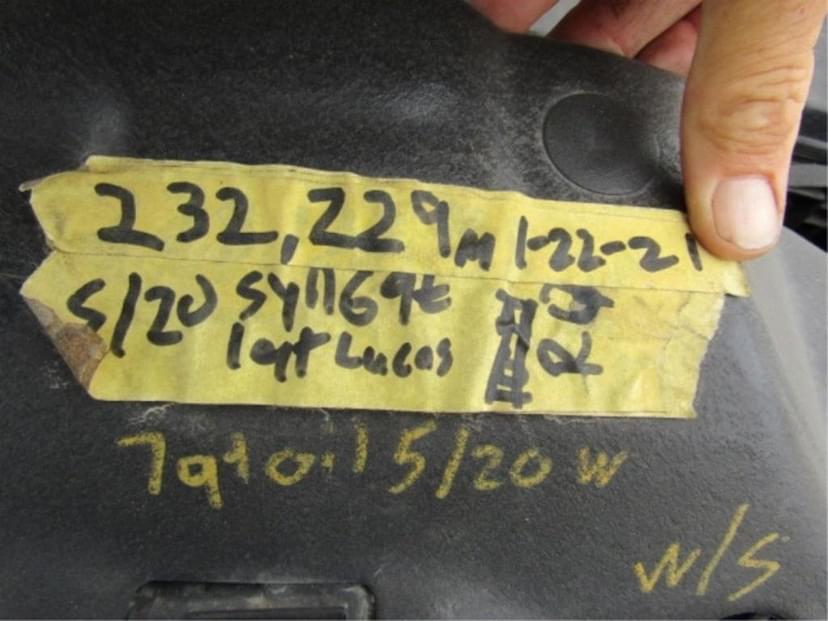 232,229m 1-22-21
5/20 Syn 6qt
1qt Lucas
7qt oil 5/20 w
w/s